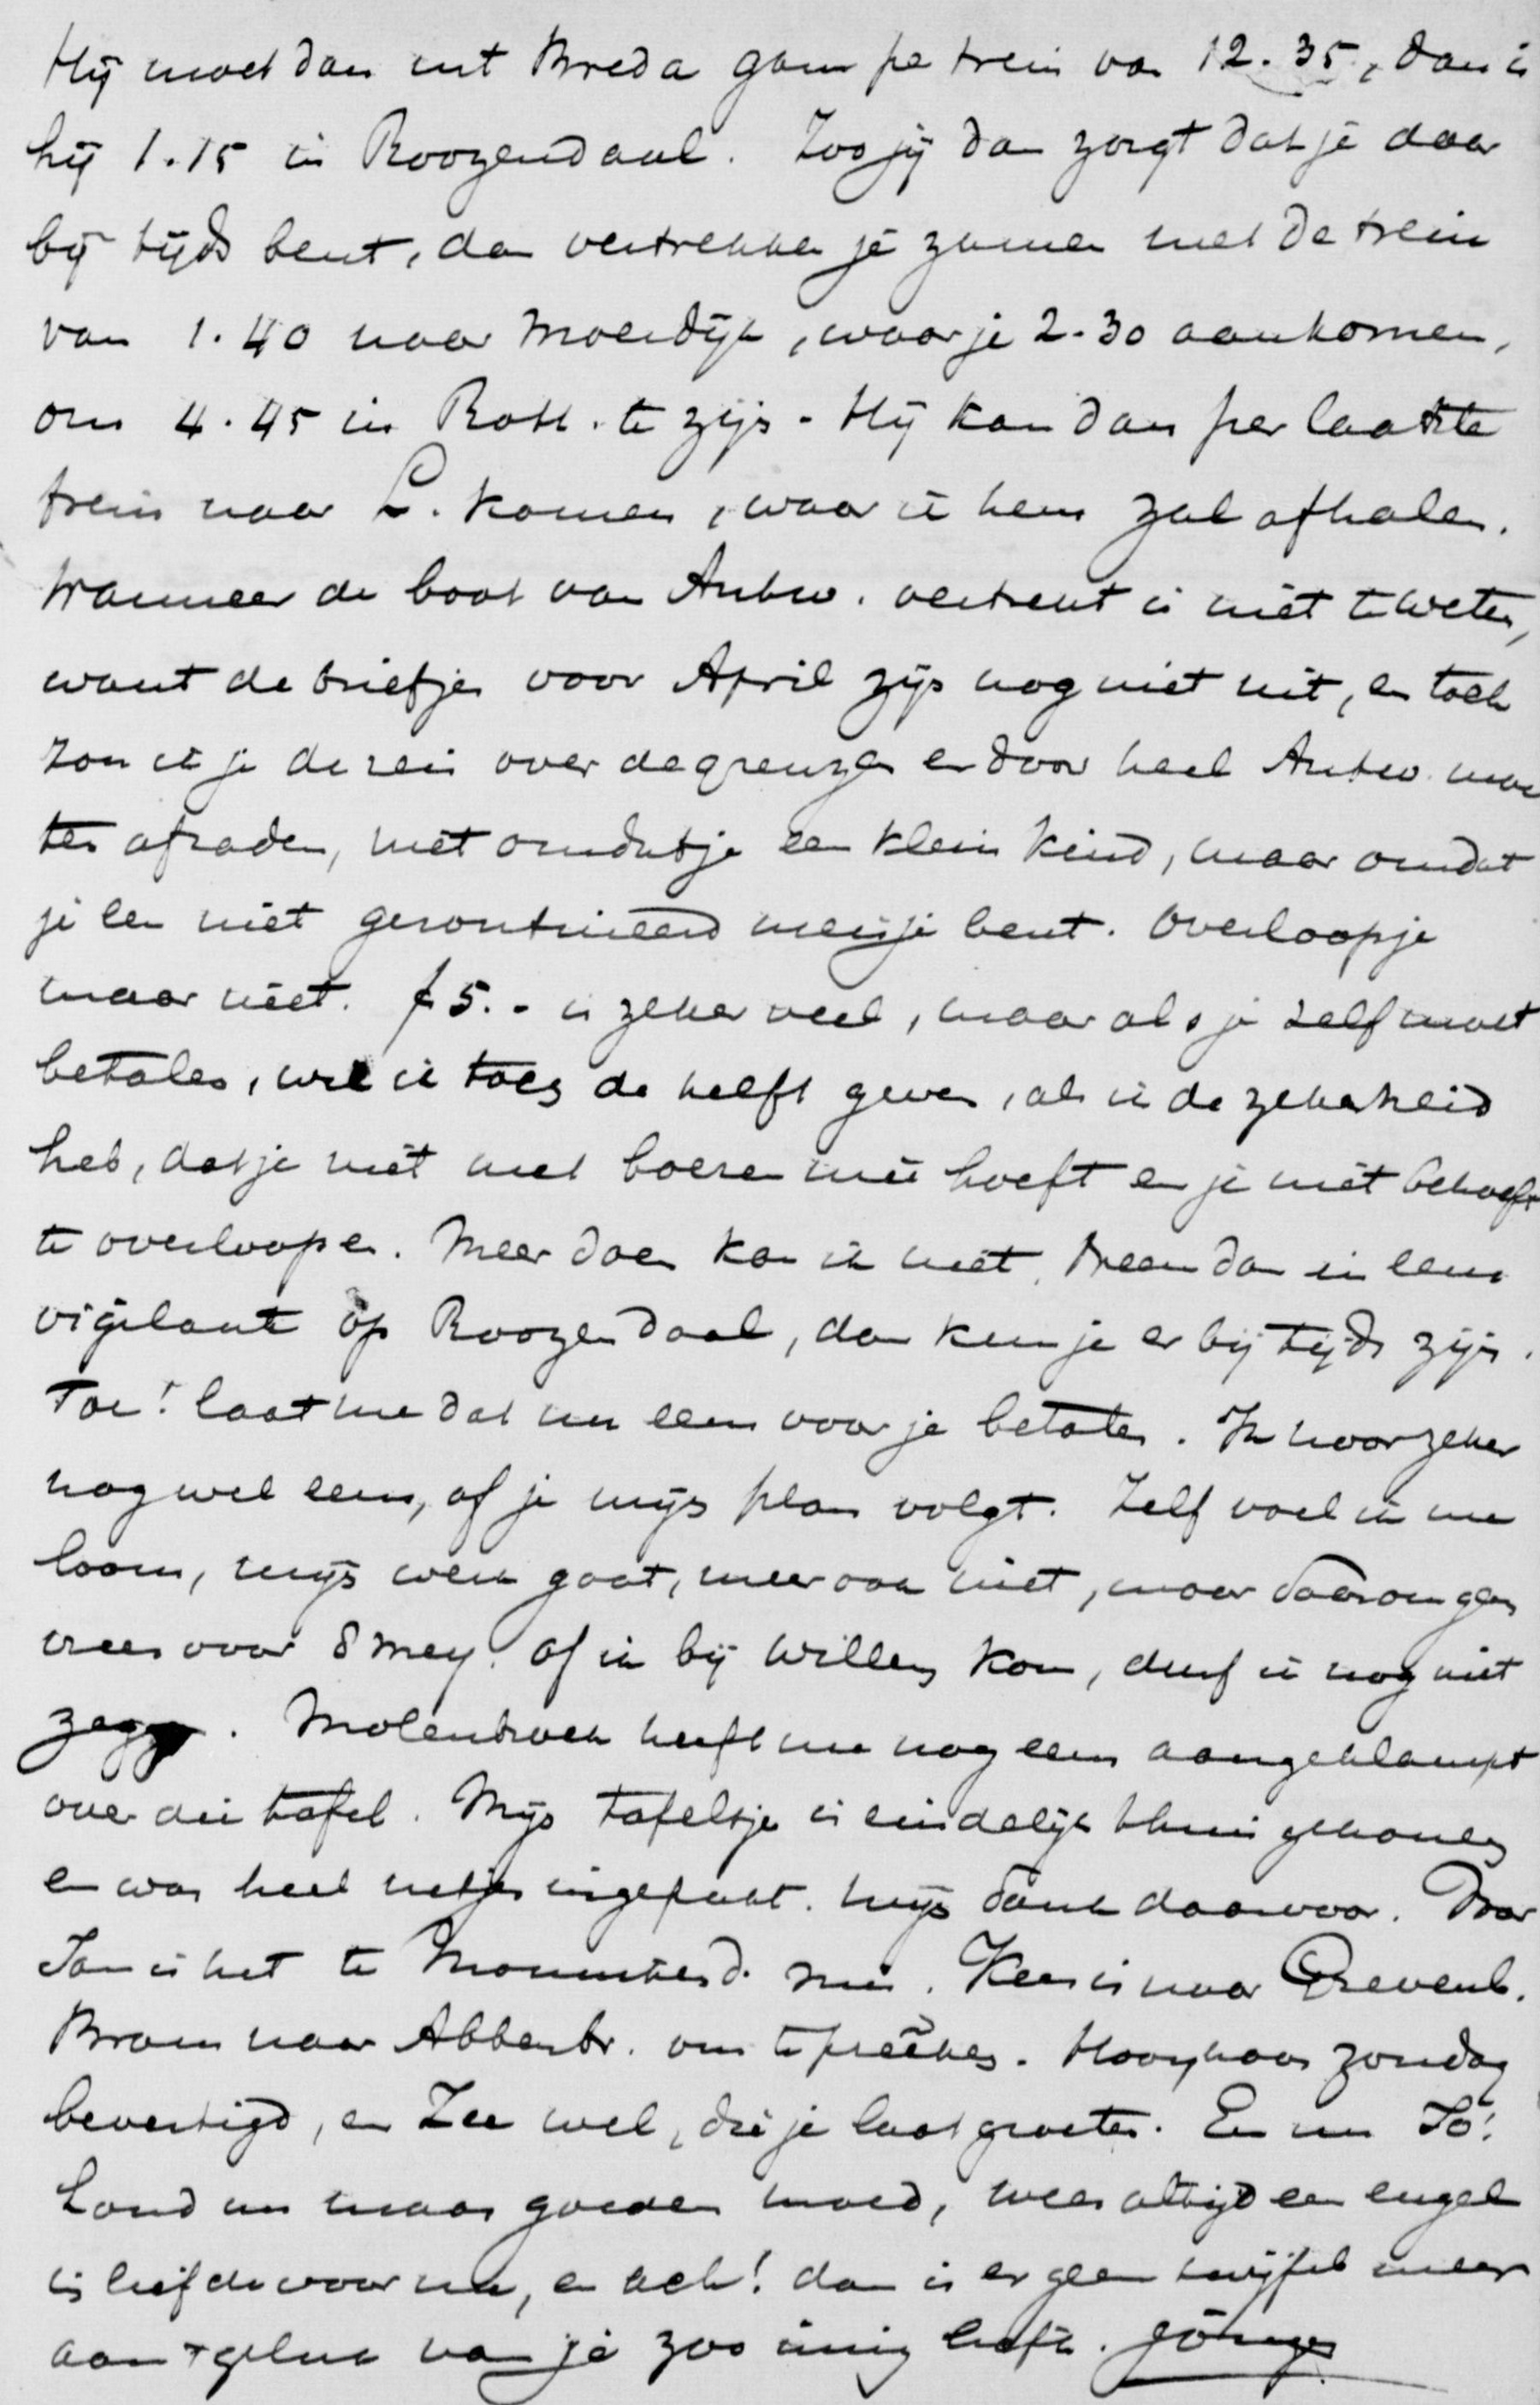 Hij moet dan uit Breda gaan pe trein van 12.35, dan is
hij 1.15 in Roozendaal. Zoo jij dan zorgt dat je daar
bij tijds bent, dan vertrekken je zamen met de trein
van 1.40 naar Moerdijk, waar je 2.30 aankomen,
om 4.45 in Rott. te zijn. Hij kan dan per laatste
trein naar L. komen, waar ik hem zal afhalen.
Wanneer de boot van Antw. vertrekt is niet te weten,
want de briefjes voor April zijn nog niet uit, en toch
zou ik je de reis over de grenzen en door heel Antw. moe
ten afraden, niet omdat je een klein kind, maar omdat
je een niet geroutineerd meisje bent. Overloop je
maar niet. f 5.- is zeker veel, maar als je zelf moet
betalen, wil ik toch de helft geven, als ik de zekerheid
heb, dat je niet met boeren mee hoeft en je niet behoeft
te overloopen. Meer doen kan ik niet. Neem dan in eens
vigilante op Roozendaal, dan kun je er bij tijds zijn.
Toe! laat me dat nu eens voor je betalen. Ik hoor zeker
nog wel eens, of je mijn plan volgt. Zelf voel ik me
loom, mijn werk gaat, meer ook niet, maar daarom geen
vrees voor 8 Mey. Of ik bij Willem kom, durf ik nog niet
zeggen. Molenbroek heeft me nog eens aangeklampt
over die tafel. Mijn tafeltje is eindelijk thuis gekomen
en was heel netjes ingepakt. Mijn dank daarvoor. Voor
Jan is het te mis. Kees is naar Grevenb.
Bram naar Abbenbr. om te preêken. Zondag
bevestigd, en Zee wel, die je laat groeten. En nu Jo!
houd nu maar goeden moed, wees altijd een engel
in liefde voor me, en ach! dan is er geen twijfel meer
aan 't geluk van je zoo innig liefh. Jongen